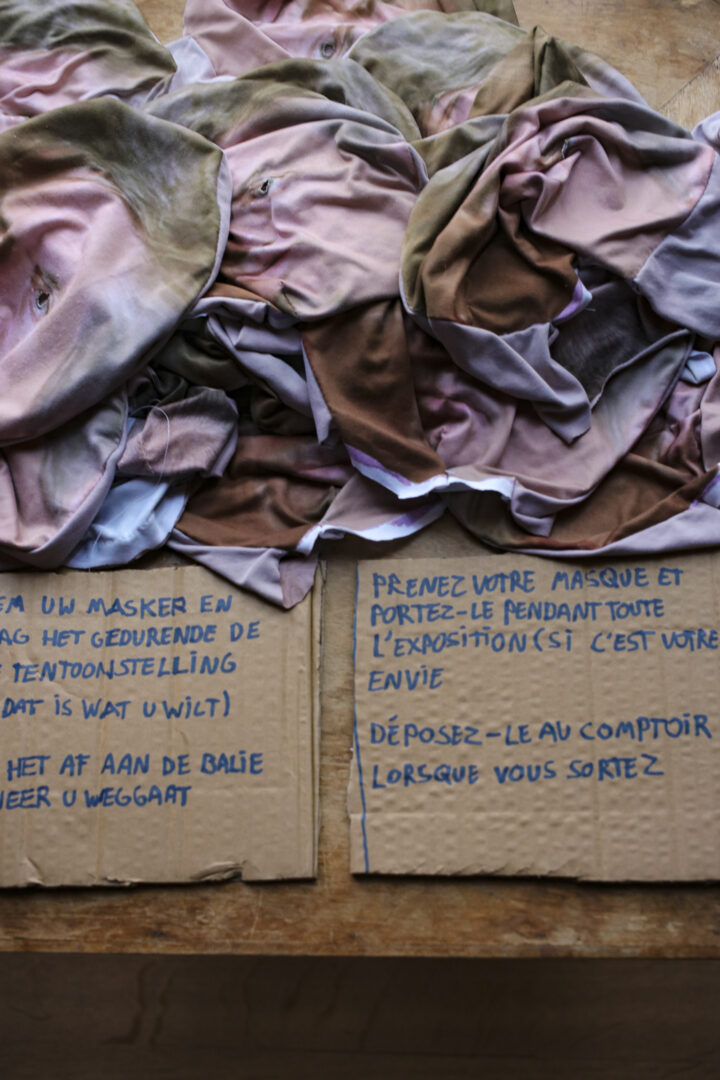 UW MASKER EN
HET GEDURENDE DE
TENTOONSTELLING
DAT IS WAT U WILT)
HET AF AAN DE BALIE
U WEGGAAT
PRENEZ VOTRE MASQUE ET
PORTEZ-LE PENDANT TOUTE
L'EXPOSITION (SI C'EST VOTRE
ENVIE
DÉPOSEZ-LE AU COMPTOIR
LORSQUE VOUS SORTEZ